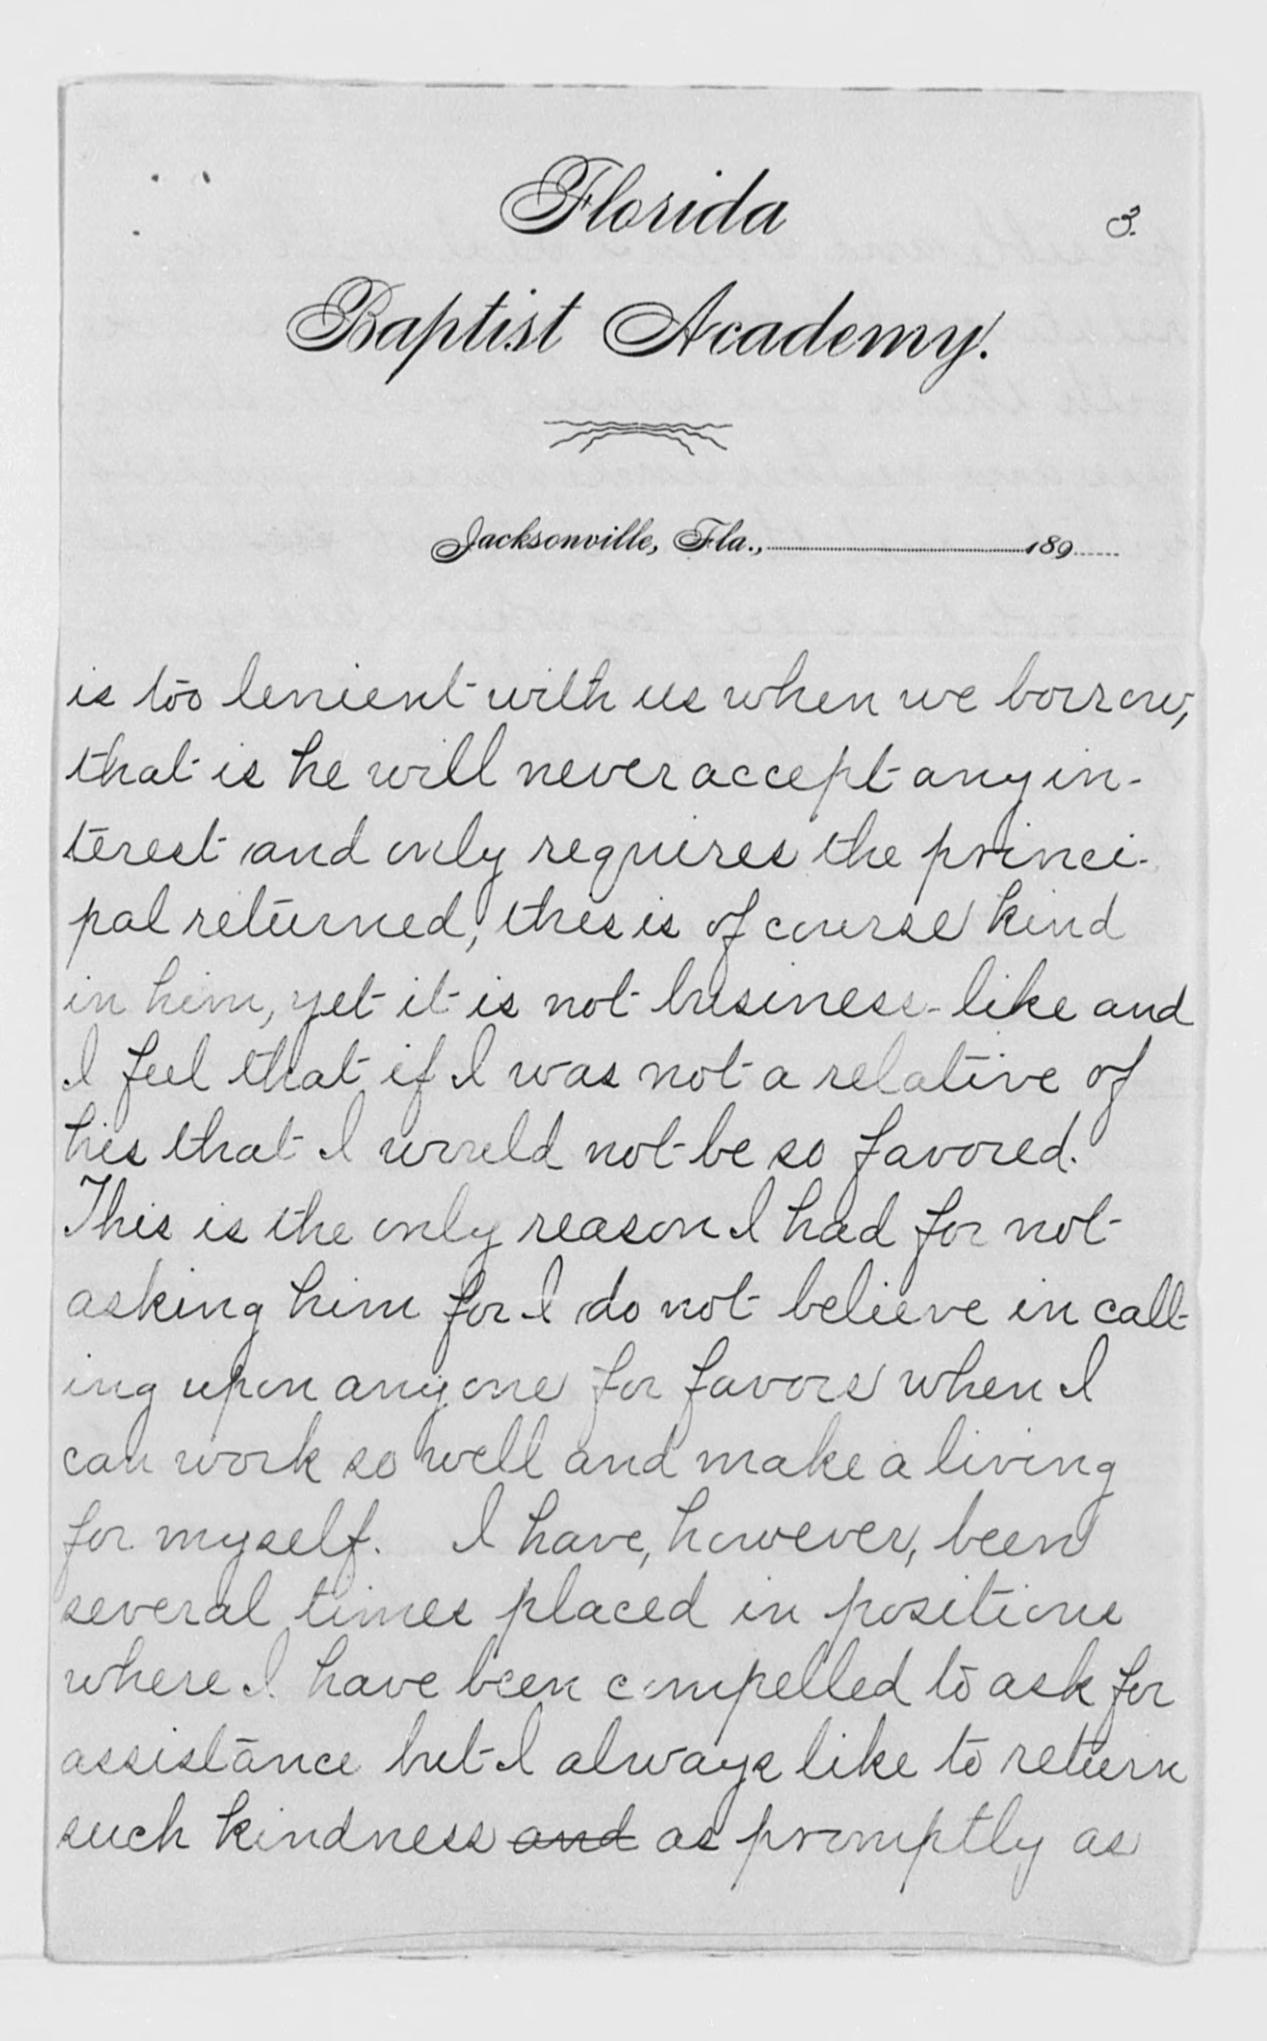 Florida
3.
Baptist Academy.
Jacksonville, Fla., 189
is too lenient with us when we borrow,
that is he will never accept any in-
terest and only requires the princi-
pal returned, this is of course kind
in him, yet it is not business-like and
I feel that if I was not a relative of
his that I would not be so favored.
This is the only reason I had for not
asking him for I do not believe in call-
ing upon anyone for favors when I
can work so well and make a living
for myself. I have, however, been
several times placed in positions
where I have been compelled to ask for
assistance but I always like to return
such kindness and as promptly as